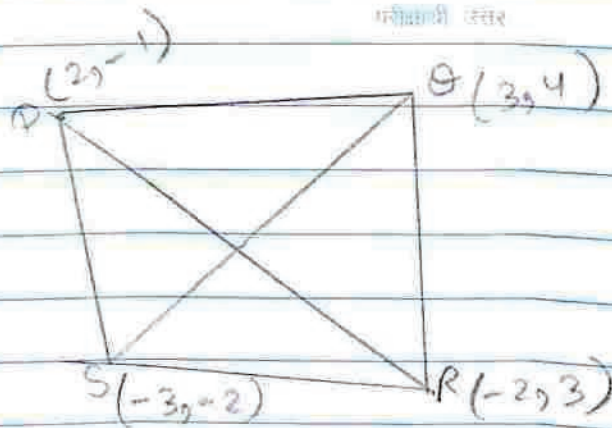 परीक्षार्थी उत्तर
(2, -1)
P
Q (3, 4)
S (-3, -2)
R (-2, 3)